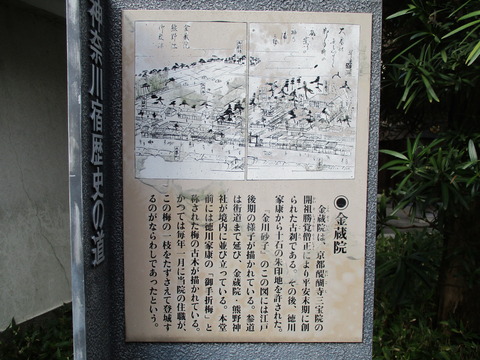 神奈川宿歴史の道
金蔵院
熊野社
◉金蔵院
金蔵院は、京都醍醐寺三宝院の
開祖勝覚僧正により平安末期に創
られた古刹である。その後、徳川
家康から十石の朱印地を許された。
「金川砂子」のこの図には江戸
後期の様子が描かれている。参道
は街道まで延び、金蔵院・熊野神
社が境内に並び立っている。本堂
前には徳川家康の「御手折梅」と
称された梅の古木が描かれている。
かつては毎年一月に当院の住職が、
この梅の一枝をたずさえて登城す
るのがならわしであったという。